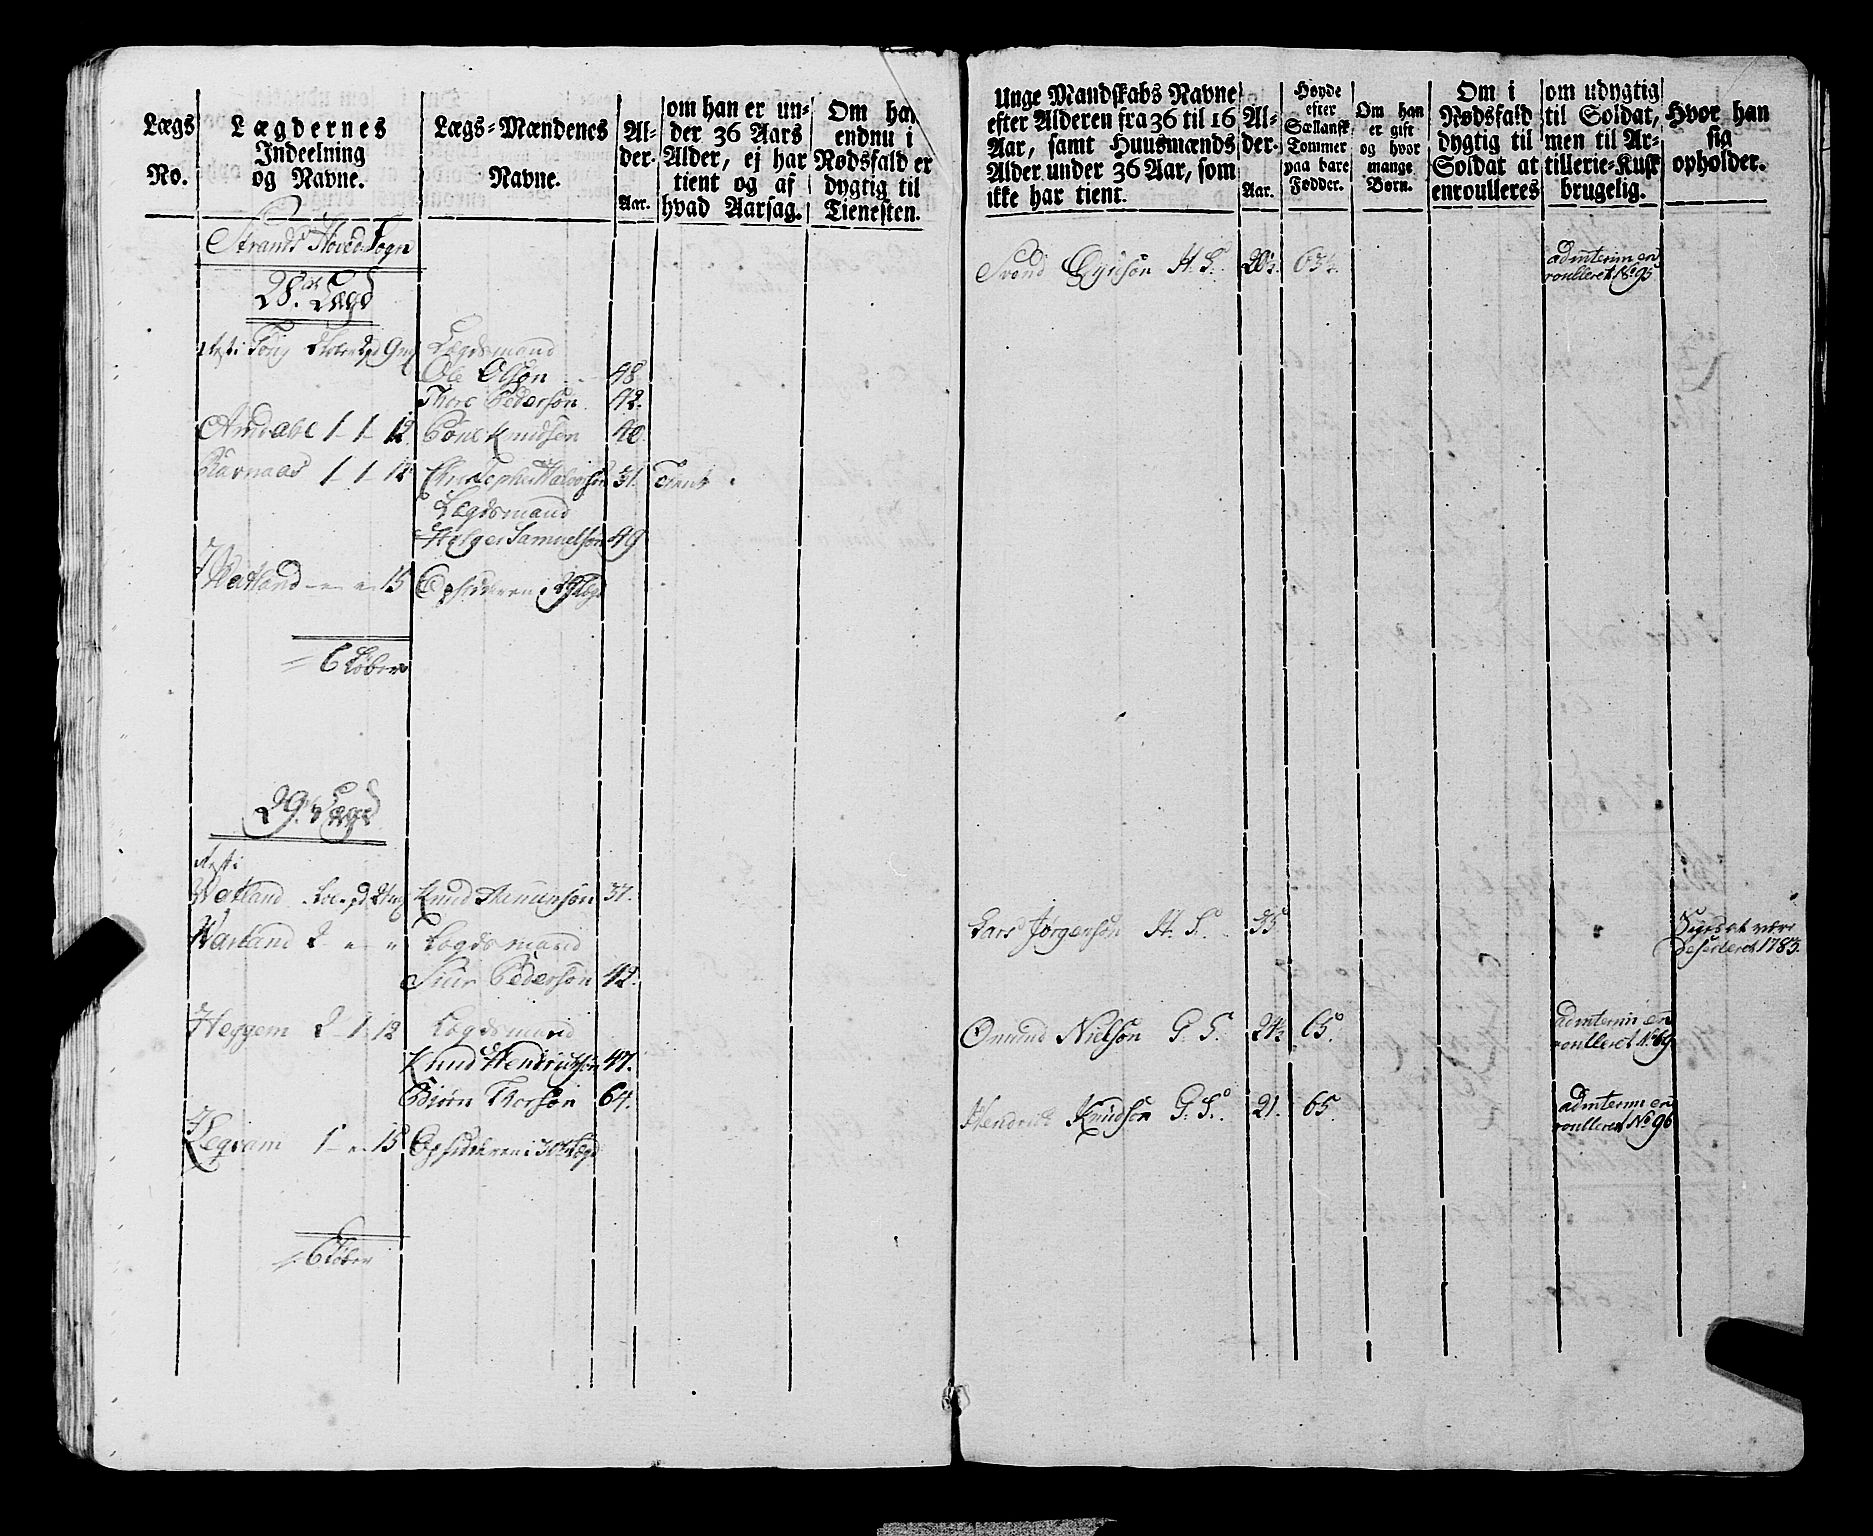 Lægs No.
Lægdernes Indeelning og Navne.
Lægs-Mændenes Navne.
Alder. Aar.
om han er under 36 Aars Alder, ej har tient og af hvad Aarsag.
Om han endnu i Nødsfald er dygtig til Tienesten.
Strands Hoved-Sogn
28de Lægd
Lægdsmand
Ole Olsøn 48
Thore Pedersøn 42.
1 1 12 Knudsøn 40.
1 1 12 Halvorsøn 31. Tient
Lægdsmand
Holger Samuelsøn 49
Watland 15 Opsidderen
6 Løber
29de Lægd
Watland Knud 37.
Warland 2 Lægdsmand
Siur Pedersøn 42.
Heggem 2 1 12 Lægdsmand
Knud Hendrichsøn 47.
Biørn Thorsøn 64.
1 15 Opsidderen i 30te Lægd
6 Løber
Unge Mandskabs Navne efter Alderen fra 36 til 16 Aar, samt Huusmænds Alder under 36 Aar, som ikke har tient.
Alder. Aar.
Høyde efter Sællansk Tommer paa bare Fødder.
Om han er gift og hvor mange Børn.
Om i Nødsfald dygtig til Soldat at enroulleres
om udygtig til Soldat, men til Artillerie-Kusk brugelig.
Hvor han sig opholder.
Svend H. S. 20½ 63½ adinterim en
roulleret No 95
Lars Jørgensøn H. S. 35 Siges at være
deserteret 1783.
Omund Nielsøn G. S. 24½ 65 adinterim en
roulleret No 69
Hendrich Knudsøn G. S. 21. 65 adinterim en
roulleret No 96